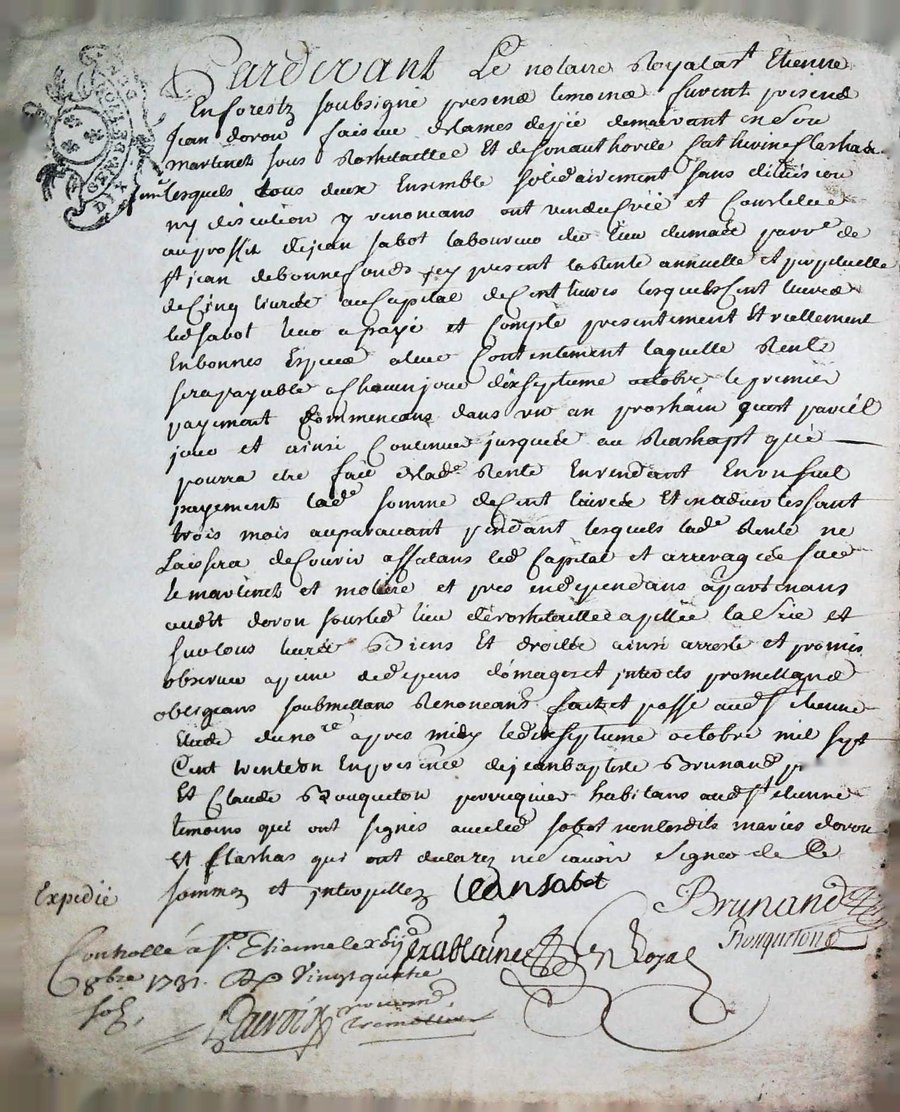 GEN. DE LION
DIX
Pardevant Le notaire Royal a St Etienne
En forestz soubsigné presens temoins furent presens
Jean dovon faiseur de lames demeurant
martinet sous Rochetaillée Et de son authorité Catherine flachas
lesquels tous deux Ensemble solidairement sans division
ny discution y renonceans ont vendu créé et Constitué
au proffit de jean sabot laboureur du lieu parre de
st jean de bonnefonds icy present la Rente annuelle et perpetuelle
de Cinq livres au Capital de Cent livres lesquels Cent livres
led sabot leur a payé et Compté presentement Et réellement
En bonnes Espèces a leur Contentement laquelle Rente
sera payable a Chacun jour dixseptieme octobre le premier
payement Commenceans dans un an prochain quart pareil
jour et ainsi Continuer jusques au Rachapt qui
pourra etre fait de lade Rente En rendant En un seul
payement lade somme de Cent livres Et en advertissant
trois mois auparavant pendant lesquels lade Rente ne
Laissera de Courir assetans led Capital et arrerages sur
le martinet et moliere et pres en dependans apartenans
audit dovon sous led lieu de rochetaillée apellée la Scie et
sur tous leurs Biens Et droits ainsi arresté et promis
observer a peine de depens domages et interets promettans
obligeans soubmettans Renonceans fait et passé aud st etienne
Etude du nore apres midy le dixseptieme octobre mil sept
Cent trente un En presence de jean baptiste Brunand
Et Claude Rouqueton perruquier habitans aud st etienne
temoins qui ont signés avec led sabot non lesdits mariés dovon
et flachas qui ont declarez ne scavoir signer de Ce
Expedié sommez et interpellez Jean sabot
Brunand
Rouqueton
Controllé a St Etienne le xviij
8bre 1731. R vingt quatre
sols,
nore Royal